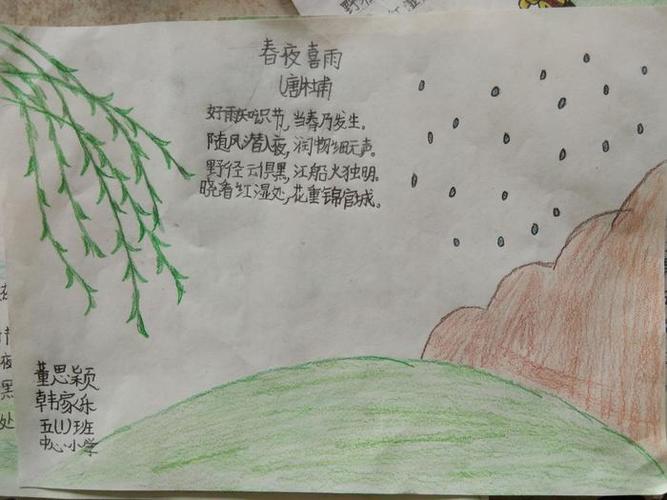 春夜喜雨
(唐)杜甫
好雨知识节,当春乃发生。
随风潜入夜,润物细无声。
野径云俱黑,江船火独明。
晓看红湿处,花重锦官城。
董思颖
韩家乐
五(1)班
中心小学
夜
黑
处